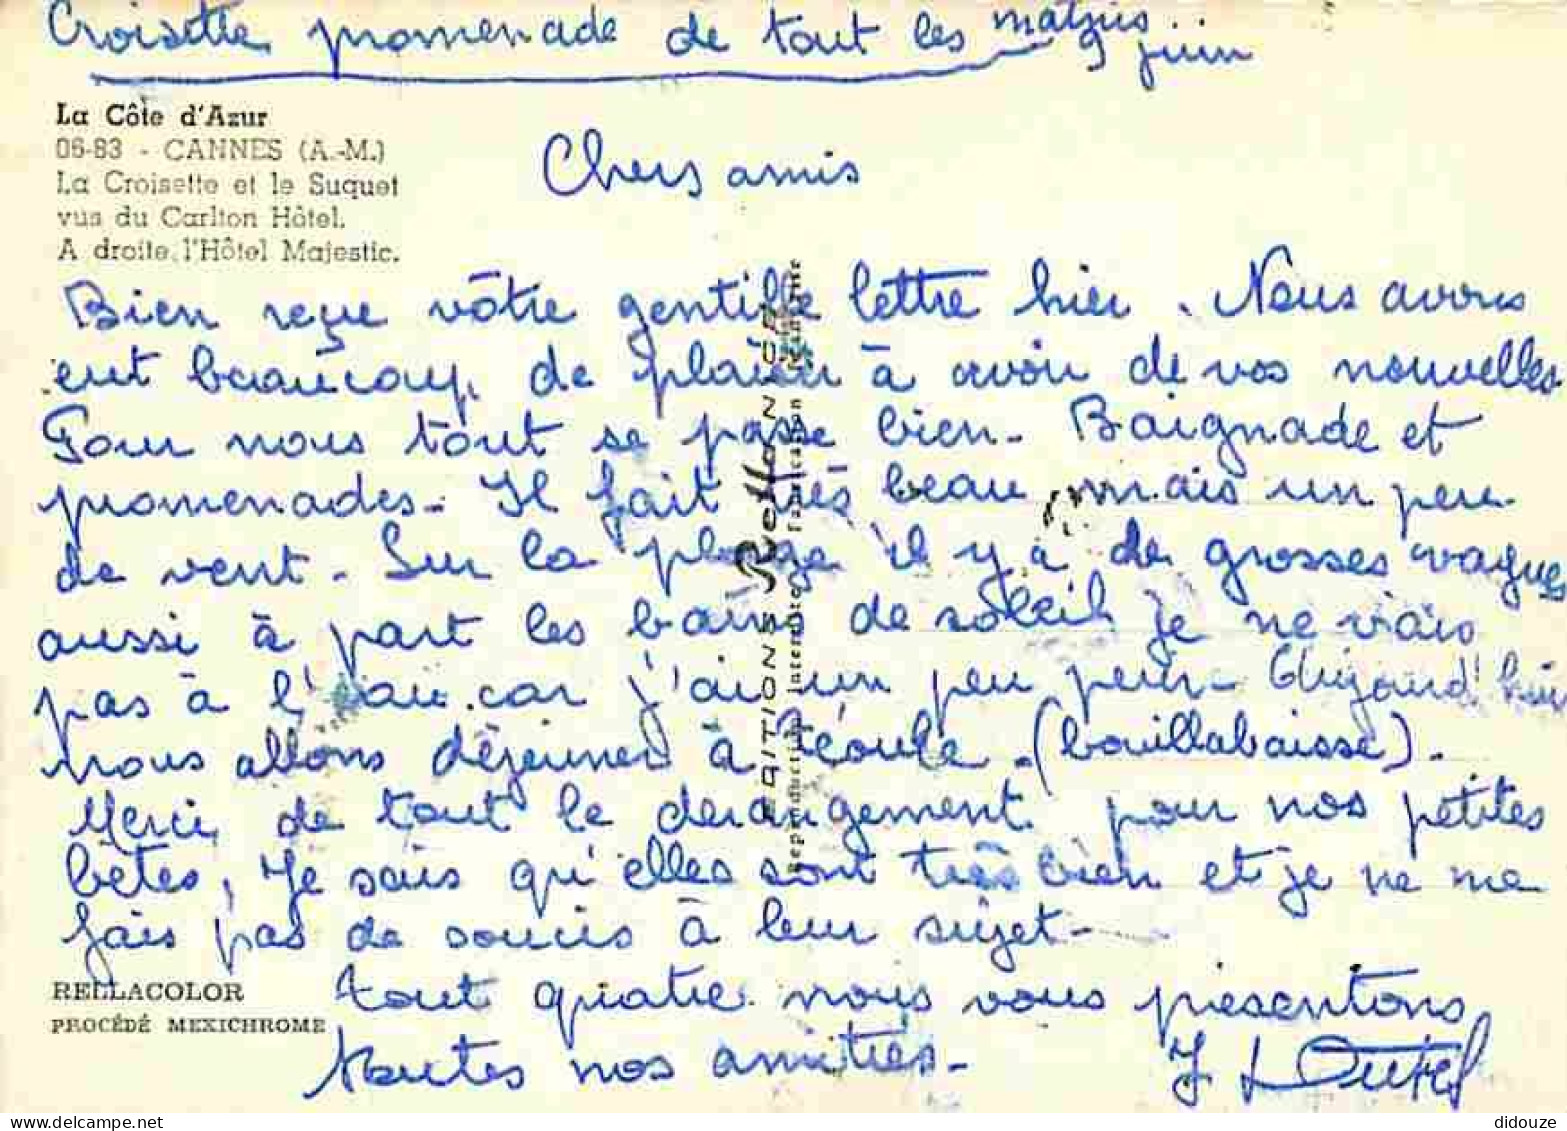 Croisette promenade de tout les matins..
9 juin
La Côte d'Azur
06-83 - CANNES (A.-M.)
La Croisette et le Suquet
vus du Carlton Hôtel.
A droite, l'Hôtel Majestic.
Chers amis
Bien reçue vôtre gentille lettre hier. Nous avons
eut beaucoup de plaisir à avoir de vos nouvelles
Pour nous tout se passe bien. Baignade et
promenades. Il fait très beau mais un peu
de vent. Sur la plage il y à de grosses vagues
aussi à part les bains de soleil je ne vais
pas à l'eau car j'ai un peu peur. Aujourd'hui
nous allons déjeuner à (bouillabaisse).
Merci de tout le derangement pour nos petites
bêtes, Je sais qu'elles sont très bien et je ne me
fais pas de soucis à leur sujet-
tout quatre nous vous présentons
toutes nos amitiés-
J
RELLACOLOR
PROCÉDÉ MEXICHROME
EDITIONS Rella NICE
Reproduction interdite Fabrication Française
didouze